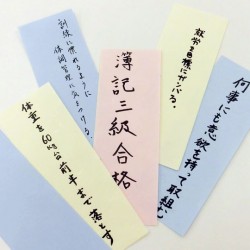 何事にも意欲を持って取組む
就労目標にガンバる.
簿記三級合格
訓練に慣れるように
体調管理に気をつける
体重を60kg台前半まで落とす